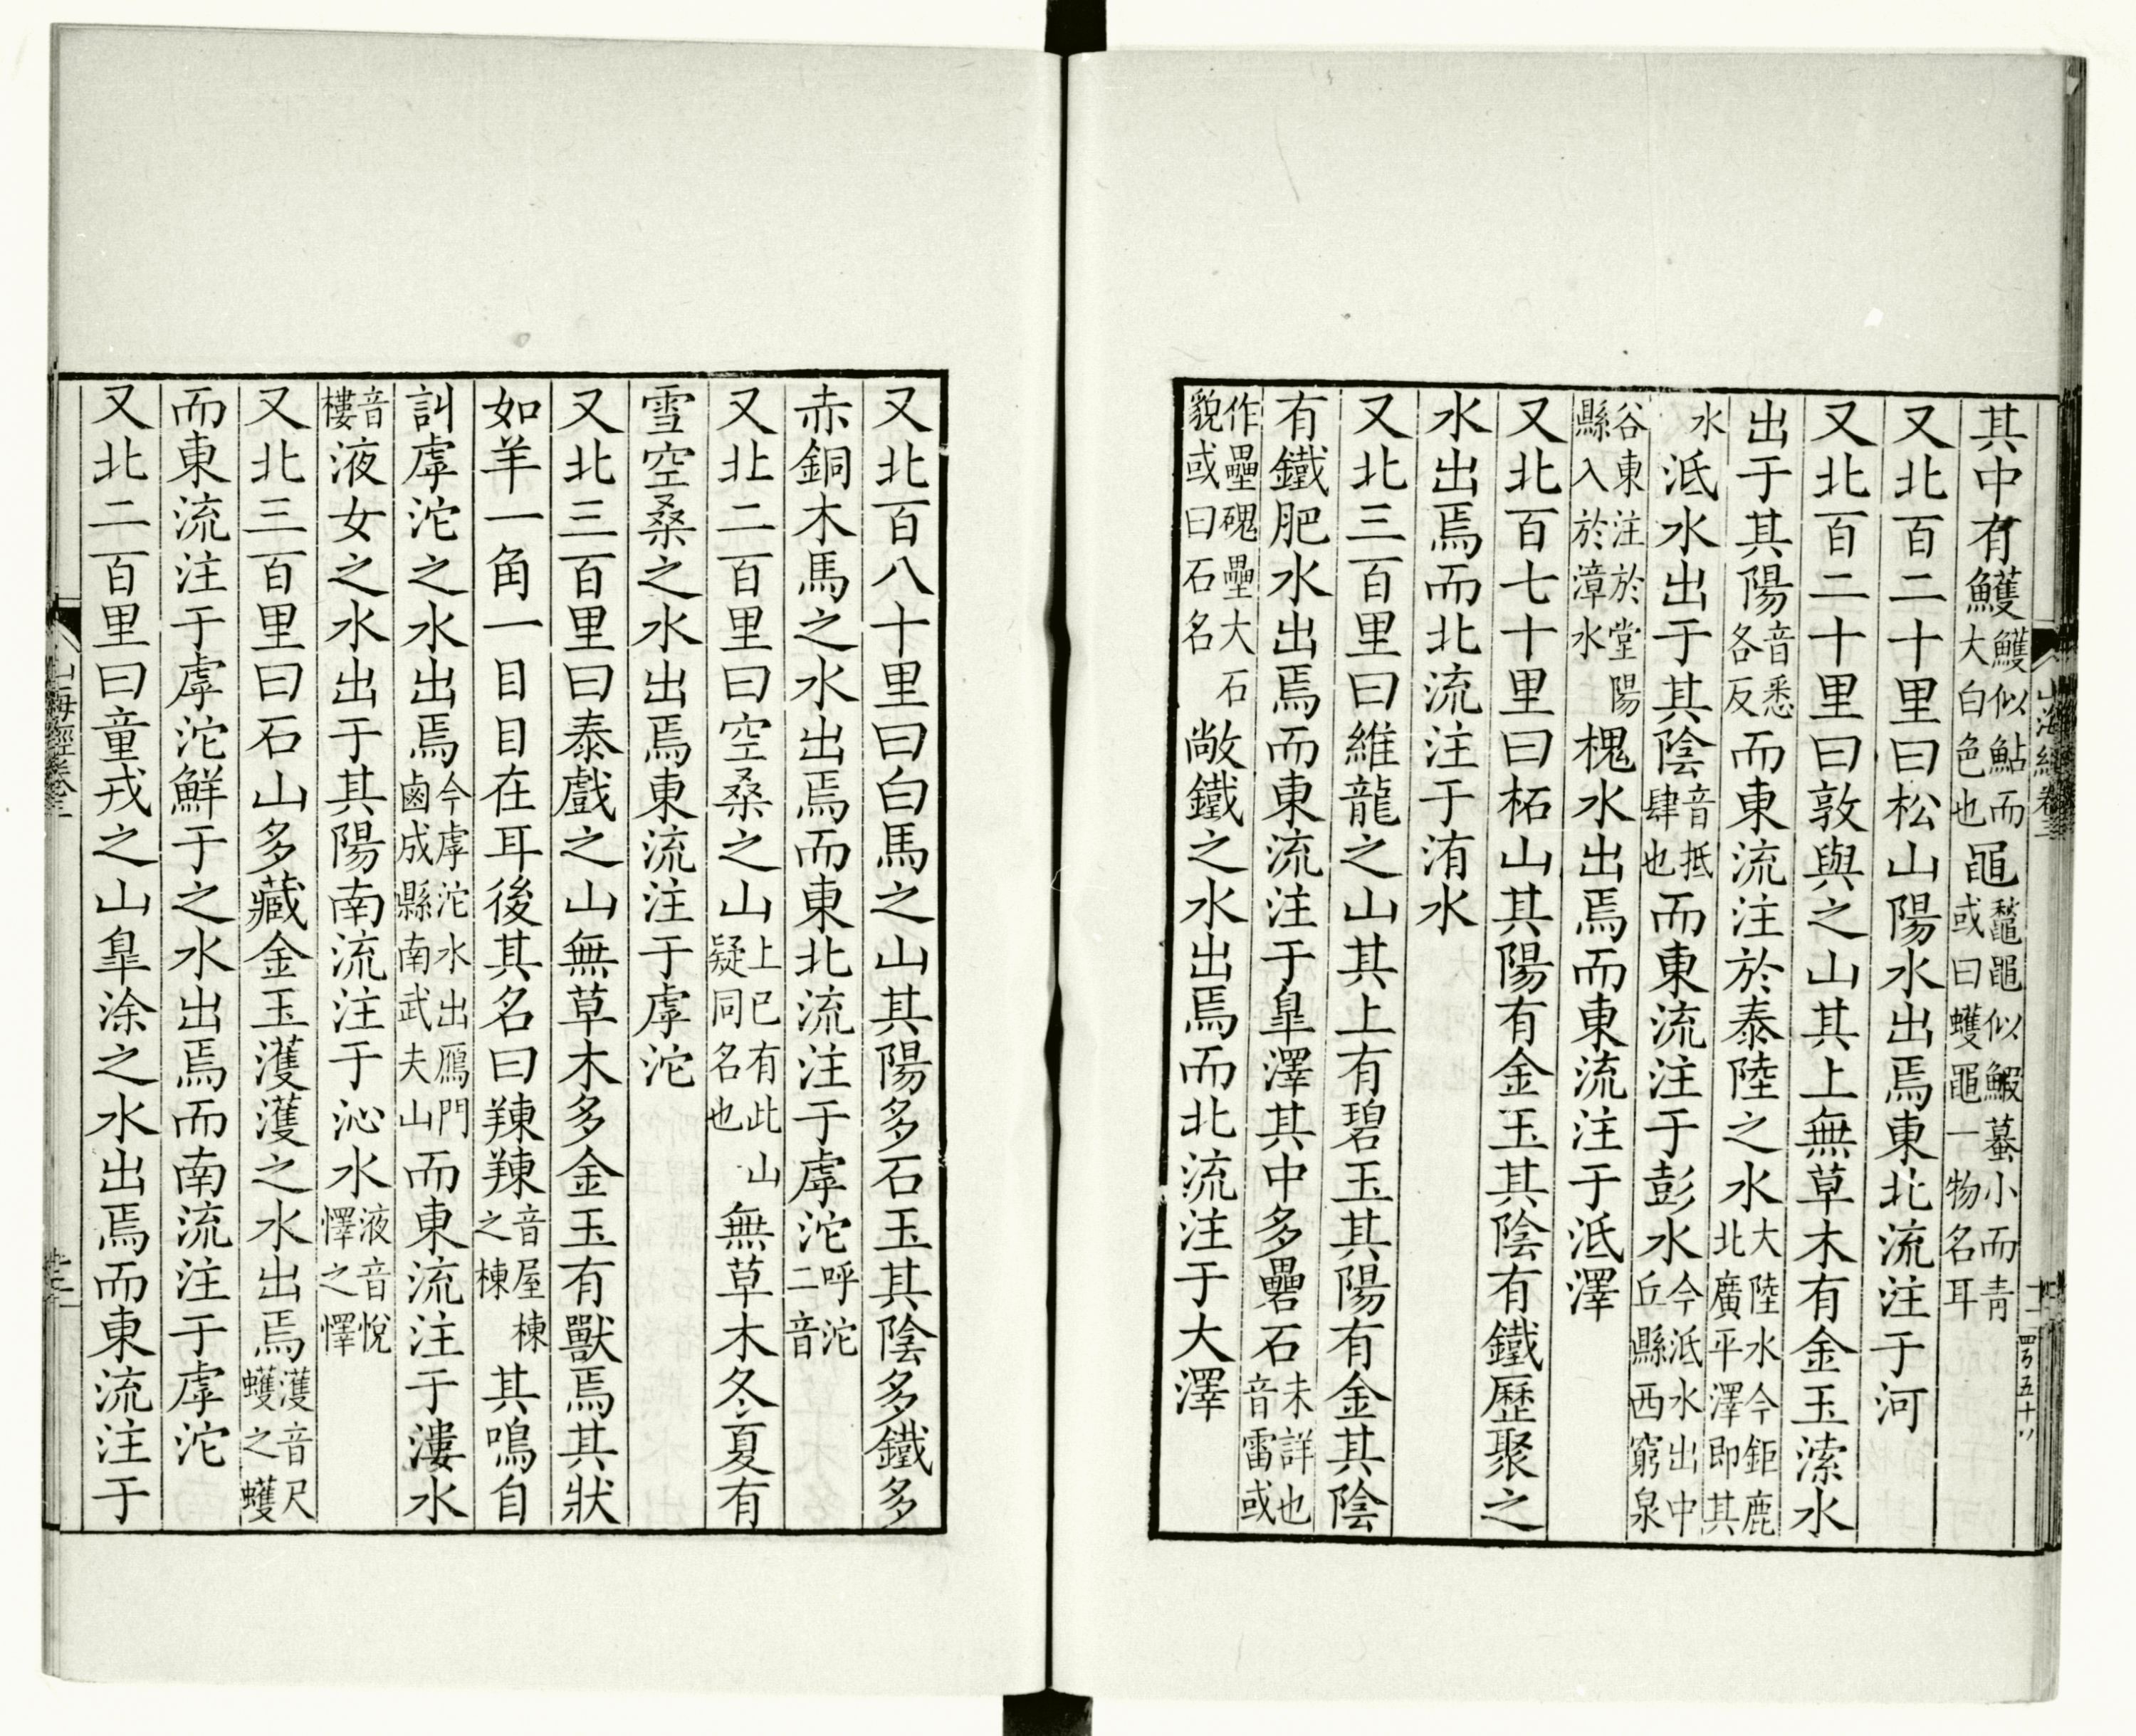 其中有鱯鱯似鮎而大白色也黽鼅黽似鰕蟇小而青或曰蠖黽一物名耳
又北百二十里曰松山陽水出焉東北流注于河
又北百二十里曰敦與之山其上無草木有金玉溹水
出于其陽音悉各反而東流注於泰陸之水大陸水今鉅鹿北廣平澤即其
水泜水出于其陰音抵肆也而東流注于彭水今泜水出中丘縣西窮泉
谷東注於堂陽縣入於漳水槐水出焉而東流注于泜澤
又北百七十里曰柘山其陽有金玉其陰有鐵歷聚之
水出焉而北流注于洧水
又北三百里曰維龍之山其上有碧玉其陽有金其陰
有鐵肥水出焉而東流注于臯澤其中多礨石未詳也音雷或
作壘磈壘大石貌或曰石名敞鐵之水出焉而北流注于大澤
又北百八十里曰白馬之山其陽多石玉其陰多鐵多
赤銅木馬之水出焉而東北流注于虖沱呼沱二音
又北二百里曰空桑之山上已有此山疑同名也無草木冬夏有
雪空桑之水出焉東流注于虖沱
又北三百里曰泰戲之山無草木多金玉有獸焉其狀
如羊一角一目目在耳後其名曰䍶䍶音屋棟之棟其鳴自
訆虖沱之水出焉今虖沱水出鴈門鹵成縣南武夫山而東流注于漊水
音樓液女之水出于其陽南流注于沁水液音悅懌之懌
又北三百里曰石山多藏金玉濩濩之水出焉濩音尺蠖之蠖
而東流注于虖沱鮮于之水出焉而南流注于虖沱
又北二百里曰童戎之山臯涂之水出焉而東流注于
山海經卷三